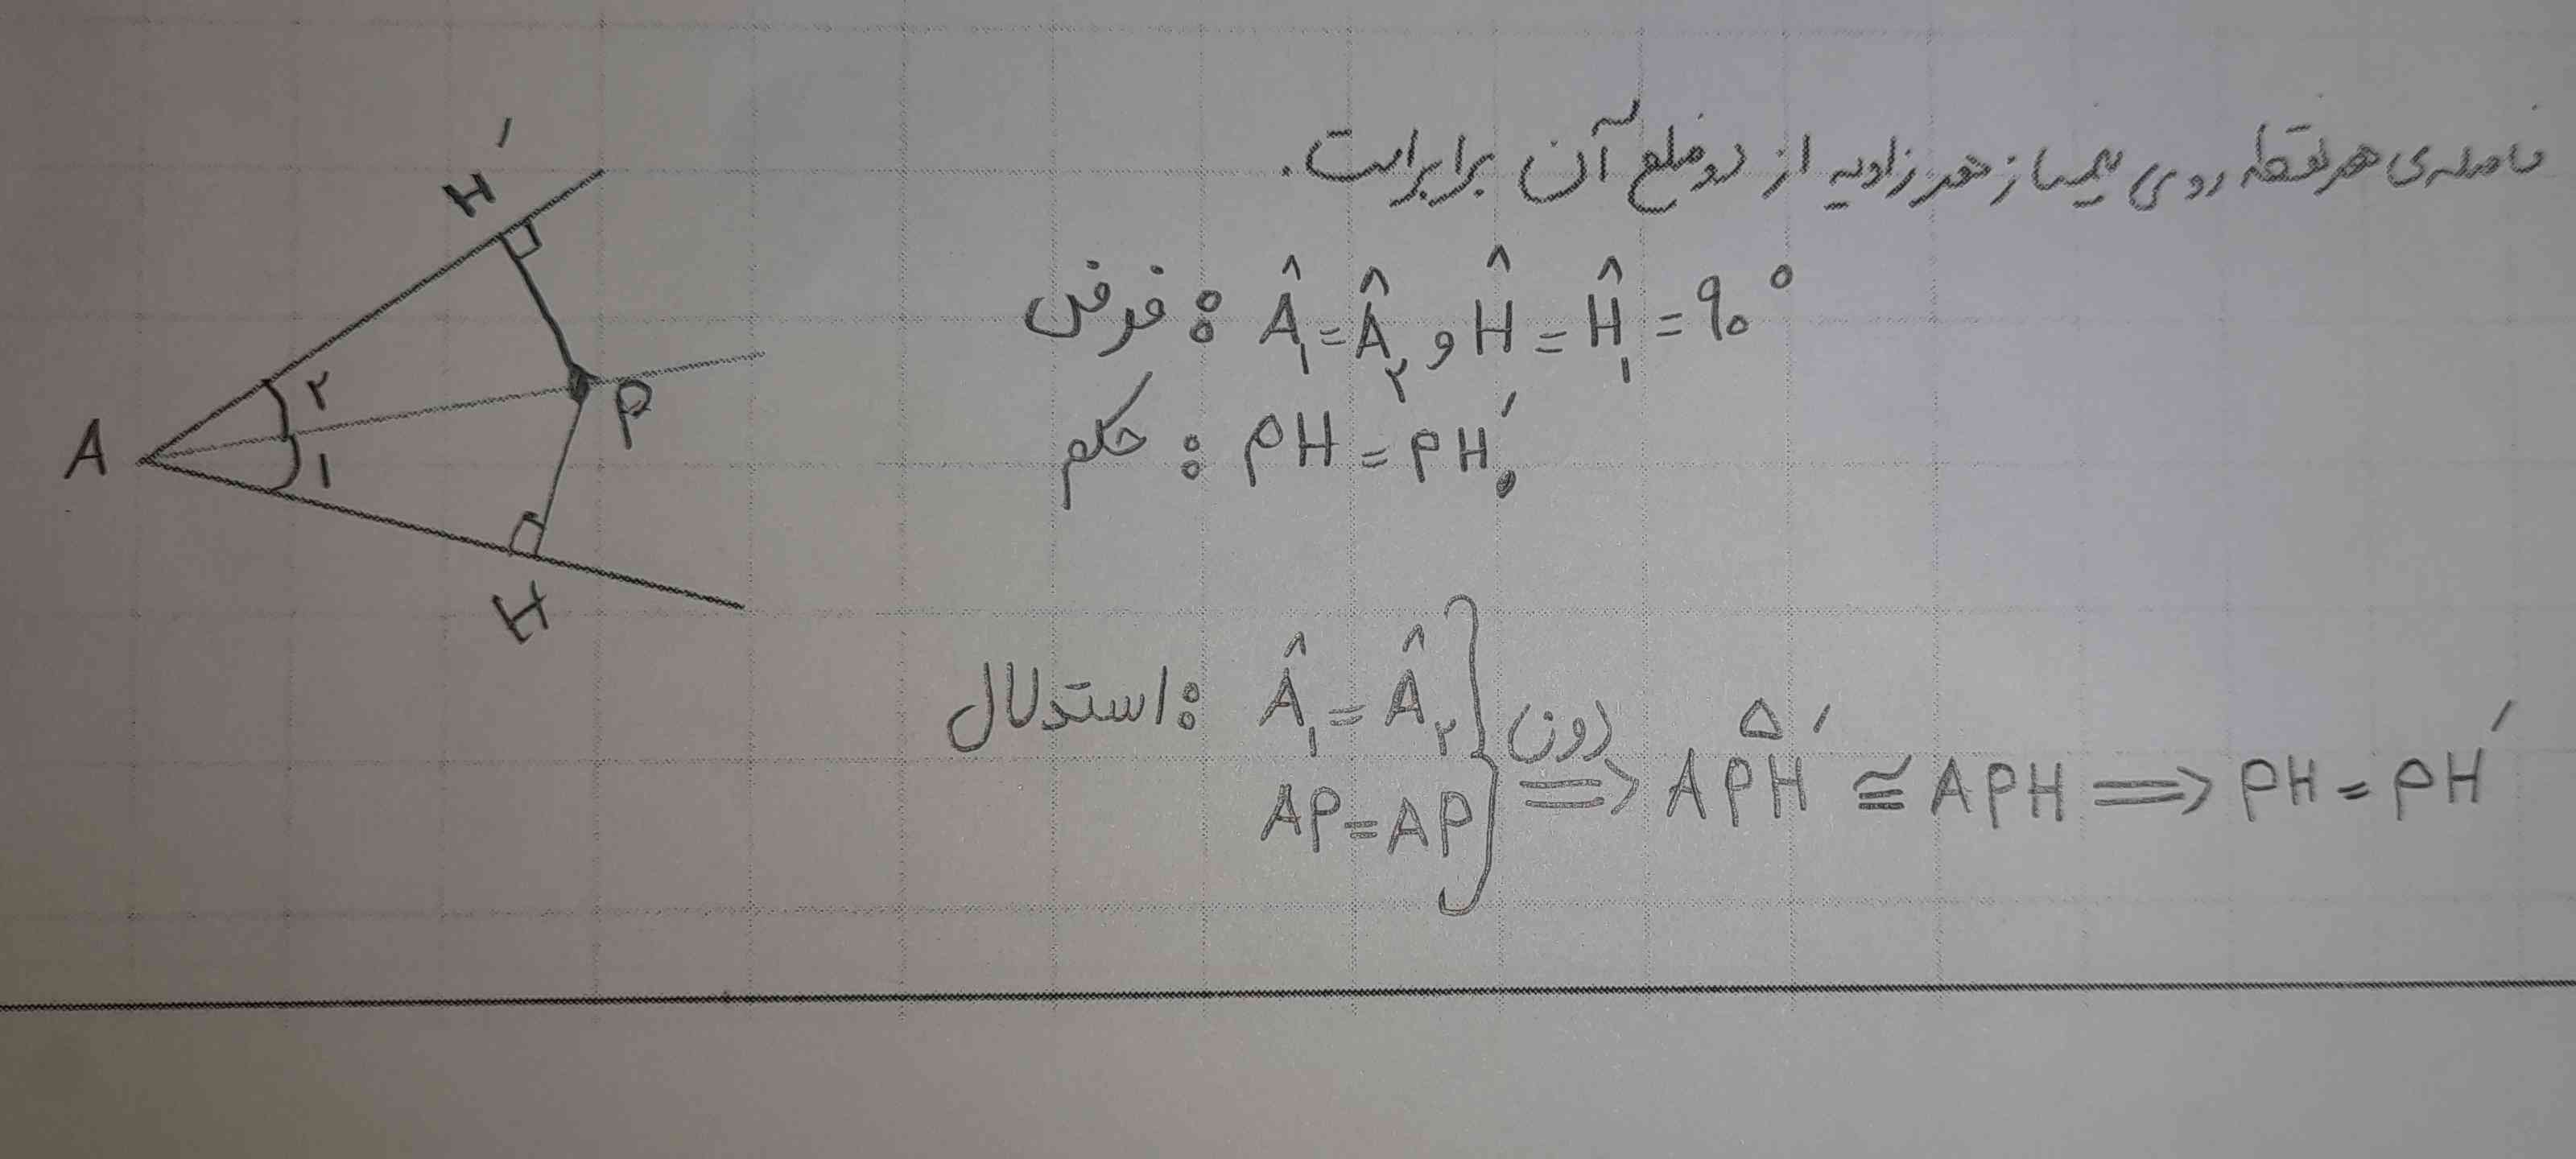 فاصله‌ی هر نقطه روی نیمساز هر زاویه از دو ضلع آن برابر است.
فرض : Â₁ = Â₂ و Ĥ = Ĥ₁ = 90°
حکم : PH = PH′.
استدلال : Â₁ = Â₂
AP = AP } (وز) ⇒ APH′ ≅ APH ⇒ PH = PH′
H′
۲
P
A
۱
H